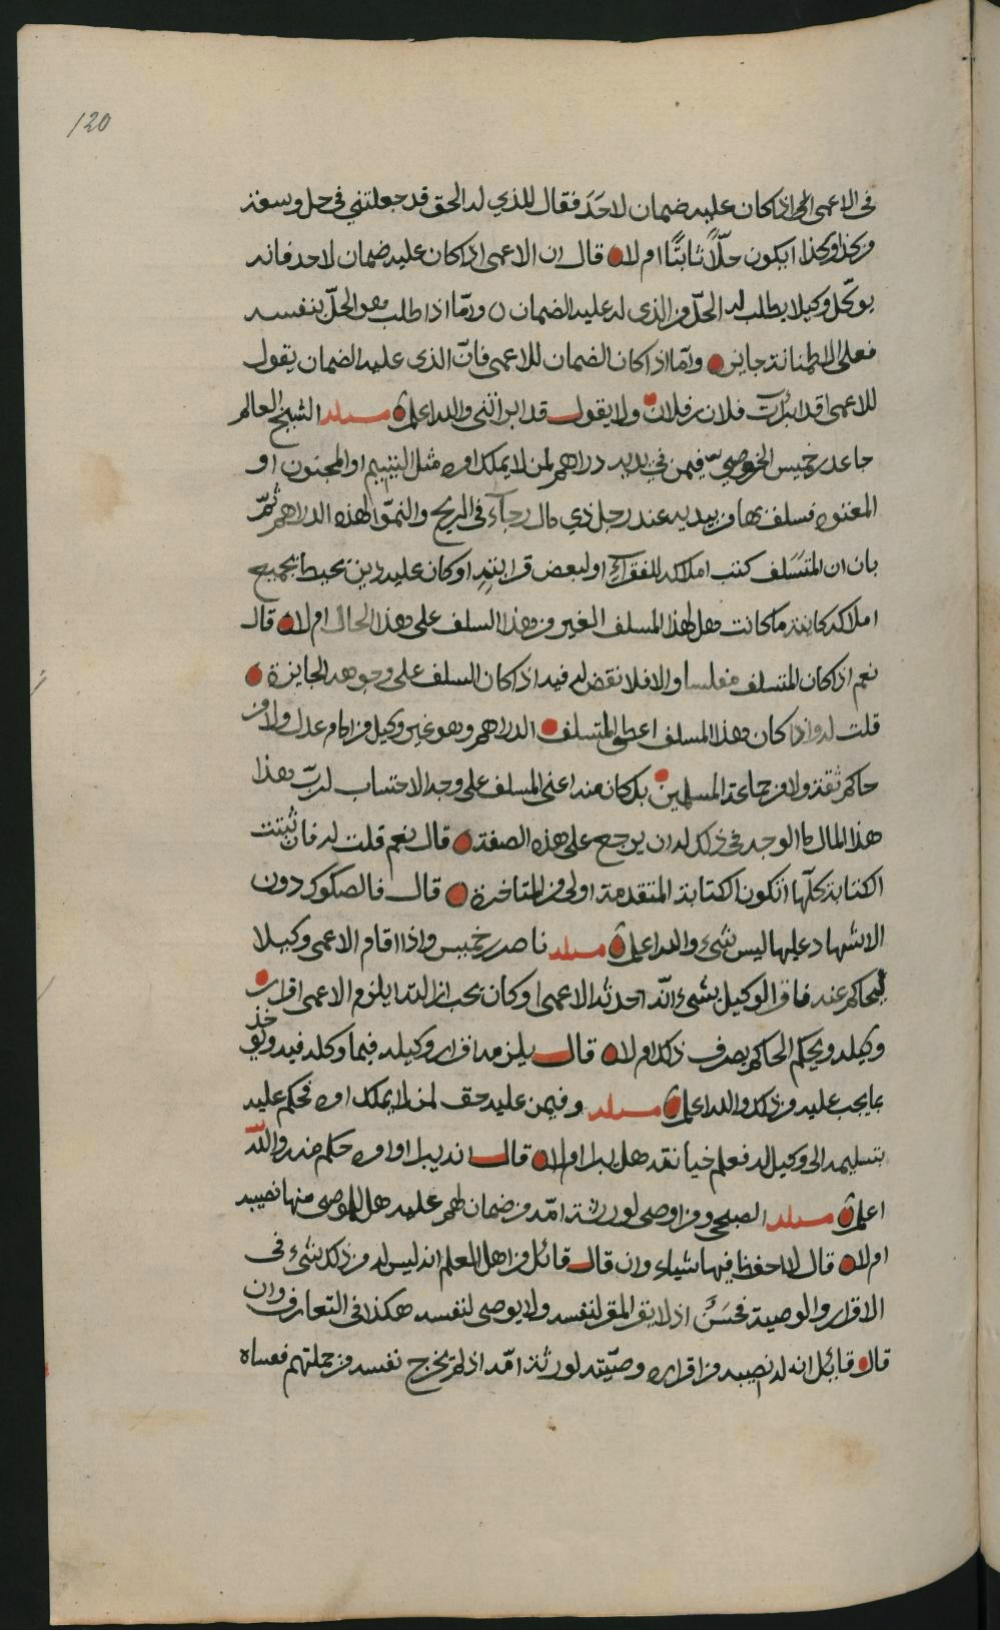 120
في الاعمى الحي اذا كان عليه ضمان لاحَد فقال للذي له الحق قد جعلتني في حل وسعة
من كذا وكذا ايكون حلّاً ثابتًا ام لا قال ان الاعمى اذا كان عليه ضمان لاحد فانه
يوكّل وكيلا يطلب له الحلّ من الذي له عليه الضمان وامّا اذا طلب هو الحلّ بنفسه
فعلى الاطمنانة جايز وامّا اذا كان الضمان للاعمى فانّ الذي عليه الضمان يقول
للاعمى اقد ابرأت فلان بن فلان ولا يقول قد ابراتني والله اعلم مسئلة الشيخ العالم
جاعد بن خميس الخروصي فيمن في يده دراهم لمن لا يملك امره مثل اليتيم او المجنون او
المعتوه فسلف بها من بيديه عند رجل ذي مال رجاءً في الربح والنموّ لهذه الدراهم ثمّ
بان ان المتسَلف كتب املاكه للفقراء او لبعض قرابته او كان عليه دين يحيط بجميع
املاكه كاينة ما كانت هل لهذا المسلف الغير من هذا السلف على هذا الحال ام لا قال
نعم اذا كان المتسلف مفلسا والا فلا نقض له فيه اذا كان السلف على وجوهه الجايزة
قلت له واذا كان هذا المسلف اعطى المتسلف الدراهم وهو غير وكيل من امام عدل ولا من
حاكم ثقة ولا من جماعة المسلمين بل كان منه اعني المسلف على وجه الاحتساب لربّ هذا
هذا المال ما الوجه في ذلك له ان يرجع على هذه الصفة قال نعم قلت له فان ثبتت
الكتابة كلّها اتكون الكتابة المتقدمة اولى من المتاخرة قال فالصكوك دون
الاشهاد عليها ليس بشيء والله اعلم مسئلة ناصر بن خميس واذا اقام الاعمى وكيلا
ليحاكم عنه فاقر الوكيل بشيء انّه احدثه الاعمى او كان يجب ازالته ايلزم الاعمى اقرار
وكيله ويحكم الحاكم بصرف ذلك ام لا قال يلزمه اقرار وكيله فيما وكله فيه ويؤخذ
بما يجب عليه من ذلك والله اعلم مسئلة وفيمن عليه حق لمن لا يملك امره فحكم عليه
بتسليمه الى وكيل له فعلم خيانته هل يبرا ام لا قال انه يبرا اوامره حكم منه والله
اعلم مسئلة الصبحي ومن اوصى لورثة امّه من ضمان لهم عليه هل للموصي منها نصيبه
ام لا قال لا احفظ فيها شياء وان قال قائل من اهل العلم انه ليس له من ذلك شيء في
الاقرار والوصية فحسَنٌ اذ لا يقر المقر لنفسه ولا يوصي لنفسه هكذا في التعارف وان
قال قايل انه له نصيبه من اقراره وصيّته لورثة امّه اذ لم يخرج نفسه من جملتهم فعساه